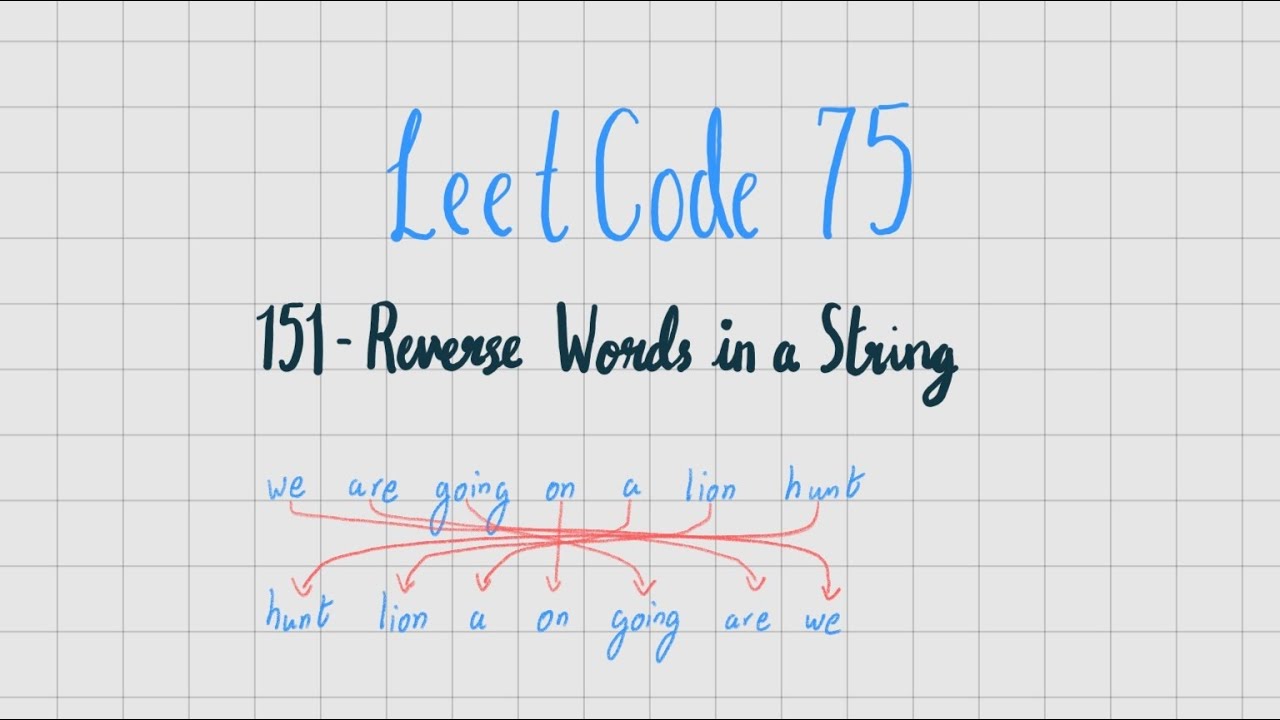 LeetCode 75
151-Reverse Words in a String
we are going on a lion hunt
hunt lion a on going are we